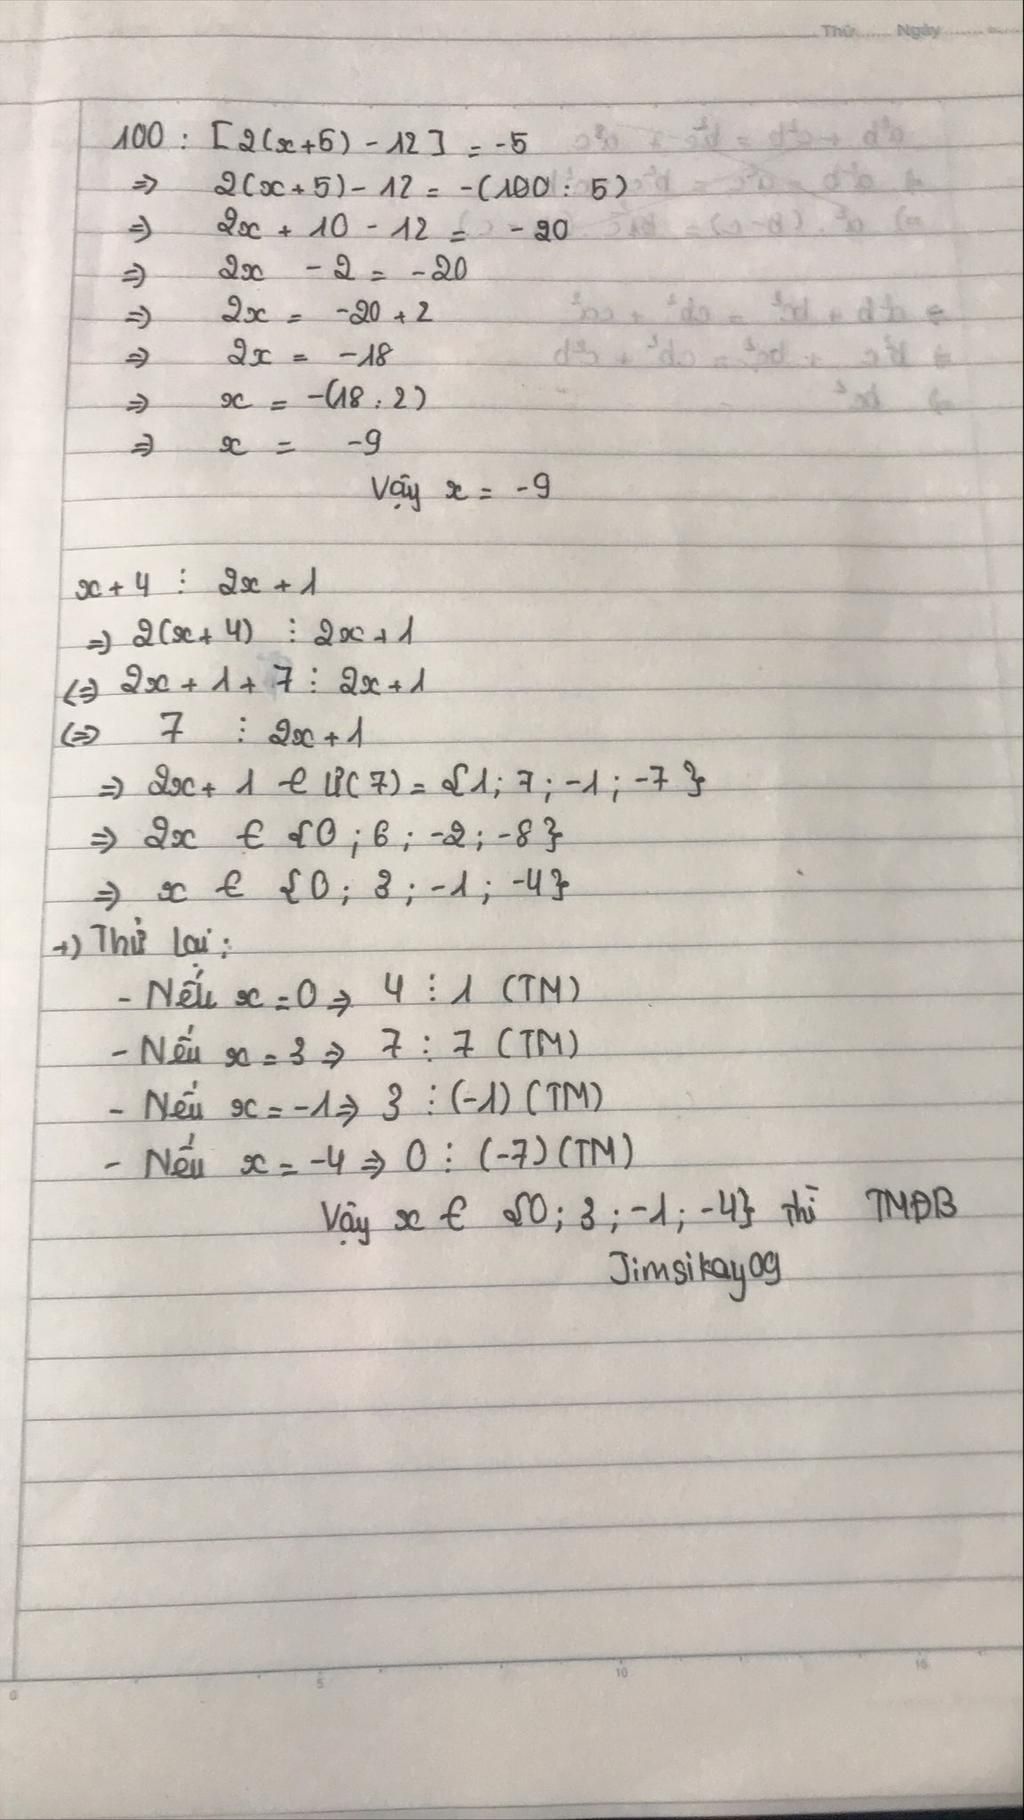 Thứ ...... Ngày ........
100 : [2(x+5) - 12] = -5
=> 2(x+5) - 12 = -(100 : 5)
=> 2x + 10 - 12 = -20
=> 2x - 2 = -20
=> 2x = -20 + 2
=> 2x = -18
=> x = -(18 : 2)
=> x = -9
Vậy x = -9
x + 4 ⋮ 2x + 1
=> 2(x + 4) ⋮ 2x + 1
(=> 2x + 1 + 7 ⋮ 2x + 1
(=> 7 ⋮ 2x + 1
=> 2x + 1 ∈ Ư(7) = {1; 7; -1; -7}
=> 2x ∈ {0; 6; -2; -8}
=> x ∈ {0; 3; -1; -4}
+) Thử lại:
- Nếu x = 0 => 4 ⋮ 1 (TM)
- Nếu x = 3 => 7 ⋮ 7 (TM)
- Nếu x = -1 => 3 ⋮ (-1) (TM)
- Nếu x = -4 => 0 ⋮ (-7) (TM)
Vậy x ∈ {0; 3; -1; -4} thì TMĐB
Jimsikay09
0 5 10 15